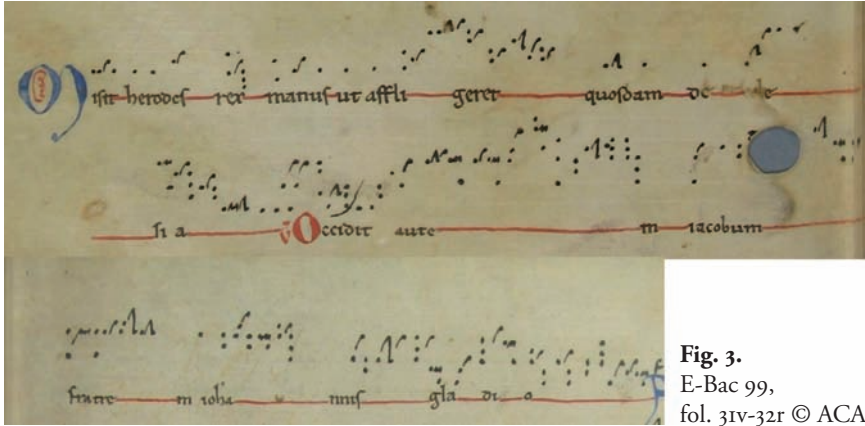 Misit herodes rex manus ut affli geret quosdam de eccle
si a ℣ Occidit aute m iacobum
fratre m ioha nnis gla di o
Fig. 3.
E-Bac 99,
fol. 31v-32r © ACA